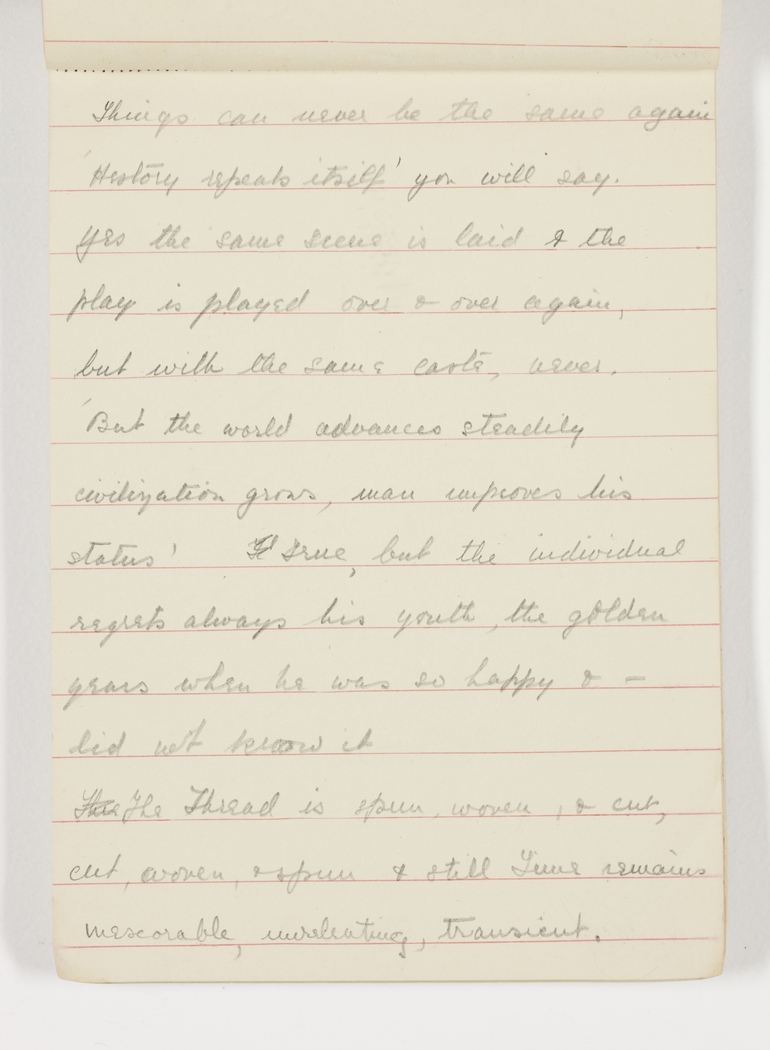 Things can never be the same again
'History repeats itself' you will say.
Yes the same scene is laid & the
play is played over & over again,
but with the same caste, never.
'But the world advances steadily
civilization grows, man improves his
status' True, but the individual
regrets always his youth, the golden
years when he was so happy & –
did not know it
The Thread is spun, woven, & cut,
cut, woven, & spun & still Time remains
inexorable, unrelenting, transient.